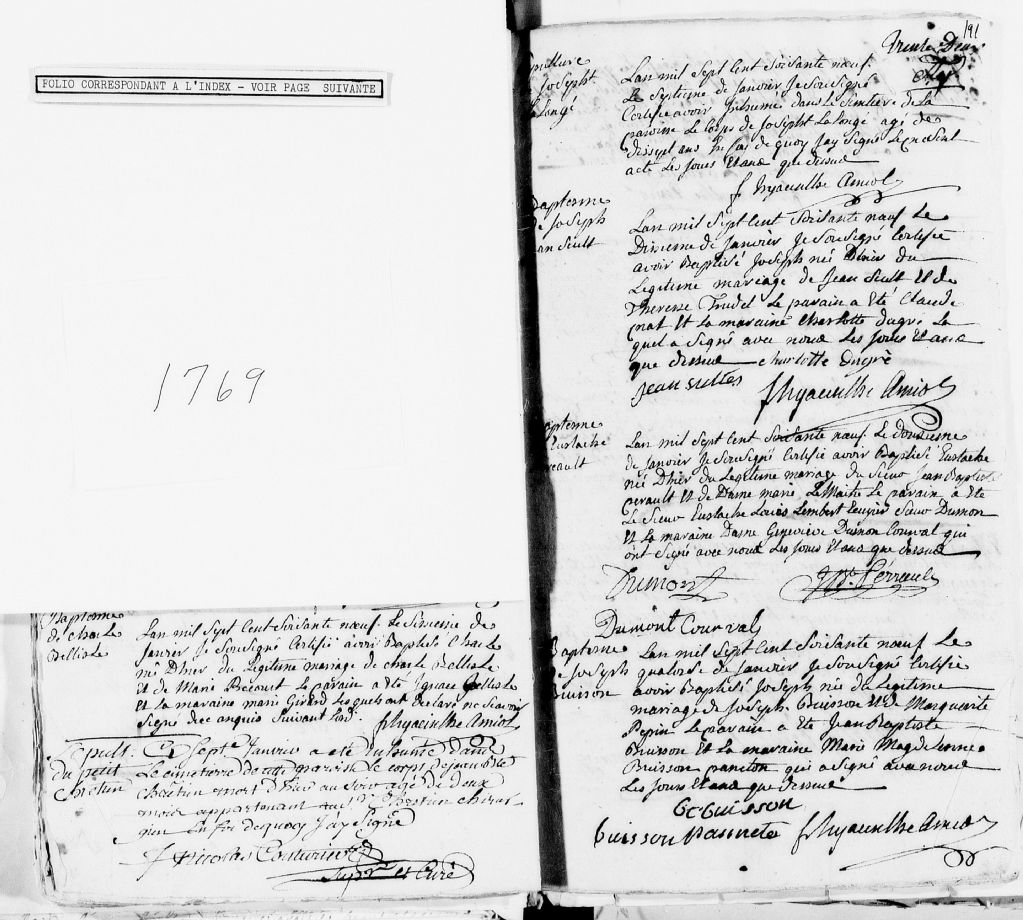 FOLIO CORRESPONDANT A L'INDEX - VOIR PAGE SUIVANTE
1769
Baptemme
de Charle
Bellisle
Lan mil sept Cent Soixante neuf Le Sixieme de
Janvier Je Sousigné Certifié avoir Baptisé Charle
né D'hier du Legitime mariage de Charle Bellisle
Et de Marie Precourt Le parain a Eté Ignace Bellisle
Et La maraine marie Girard Lesquels ont declaré ne Scavoir
Signé dece anquis Suivant Lord.
f hyacinthe Amiot
Sepult.
du petit
Chretien
Ce Sept.e Janvier a eté inhumé dans
Le cimetierre de cette paroisse le corps de jean Bte
mort d'hier au soir agé de deux
mois appartenant au Sr. Chretien chirur
gien En foi de quoy J'ay Signé
f. Nicolas Couturier
Sup.r et Curé
191
Trente Deux
pulture
Joseph
Longé
Lan mil Sept Cent Soixante neuf
Le Septieme de Janvier Je Sousigné
Certifie avoir Inhumé dans Le Simtiere de La
paroisse Le Corps de Joseph LaLongé agé de
dissept ans En foy de quoy Jay Signé Le present
acte Les Jours Et ans que dessus
f hyacinthe Amiot
baptemme
de Joseph
Jean Scult
Lan mil Sept Cent Soixante neuf Le
Dixieme de Janvier Je Sousigné Certifie
avoir Baptisé Joseph né D'hier du
Legitime mariage de Jean Scult Et de
Therese Trudel Le parain a Eté Claude
prat Et La maraine Charlotte dugré La
quel a Signé avec nous Les Jours Et ans
que dessus
charlotte dugré
jean sultes
f hyacinthe Amiot
aptemme
Eustache
reault
Lan mil Sept Cent Soixante neuf Le douxieme
de Janvier Je Sousigné Certifié avoir Baptisé Eustache
né D'hier du Legitime mariage du Sieur Jean Baptiste
perault Et de Dame marie LeMaitre Le parain a Eté
Le Sieur Eustache Louis Lembert Ecuyier Sieur Dumon
Et La maraine Dame Genevieve Dumon Courval qui
ont Signé avec nous Les Jours Et ans que dessus
Dumont
JBte Perrault
Dumont Courval
Baptemme
de Joseph
Buisson
Lan mil Sept Cent Soixante neuf Le
quatorse de Janvier Je Sousigné Certifie
avoir Baptisé Joseph né du Legitime
mariage de Joseph Buisson Et de Marguerite
Pepin Le parain a Eté Jean Baptiste
Buisson Et La maraine Marie Magdeleinne
Buisson paneton qui a Signé avec nous
Les Jours Et ans que dessus
buisson panneto
f hyacinthe Amiot